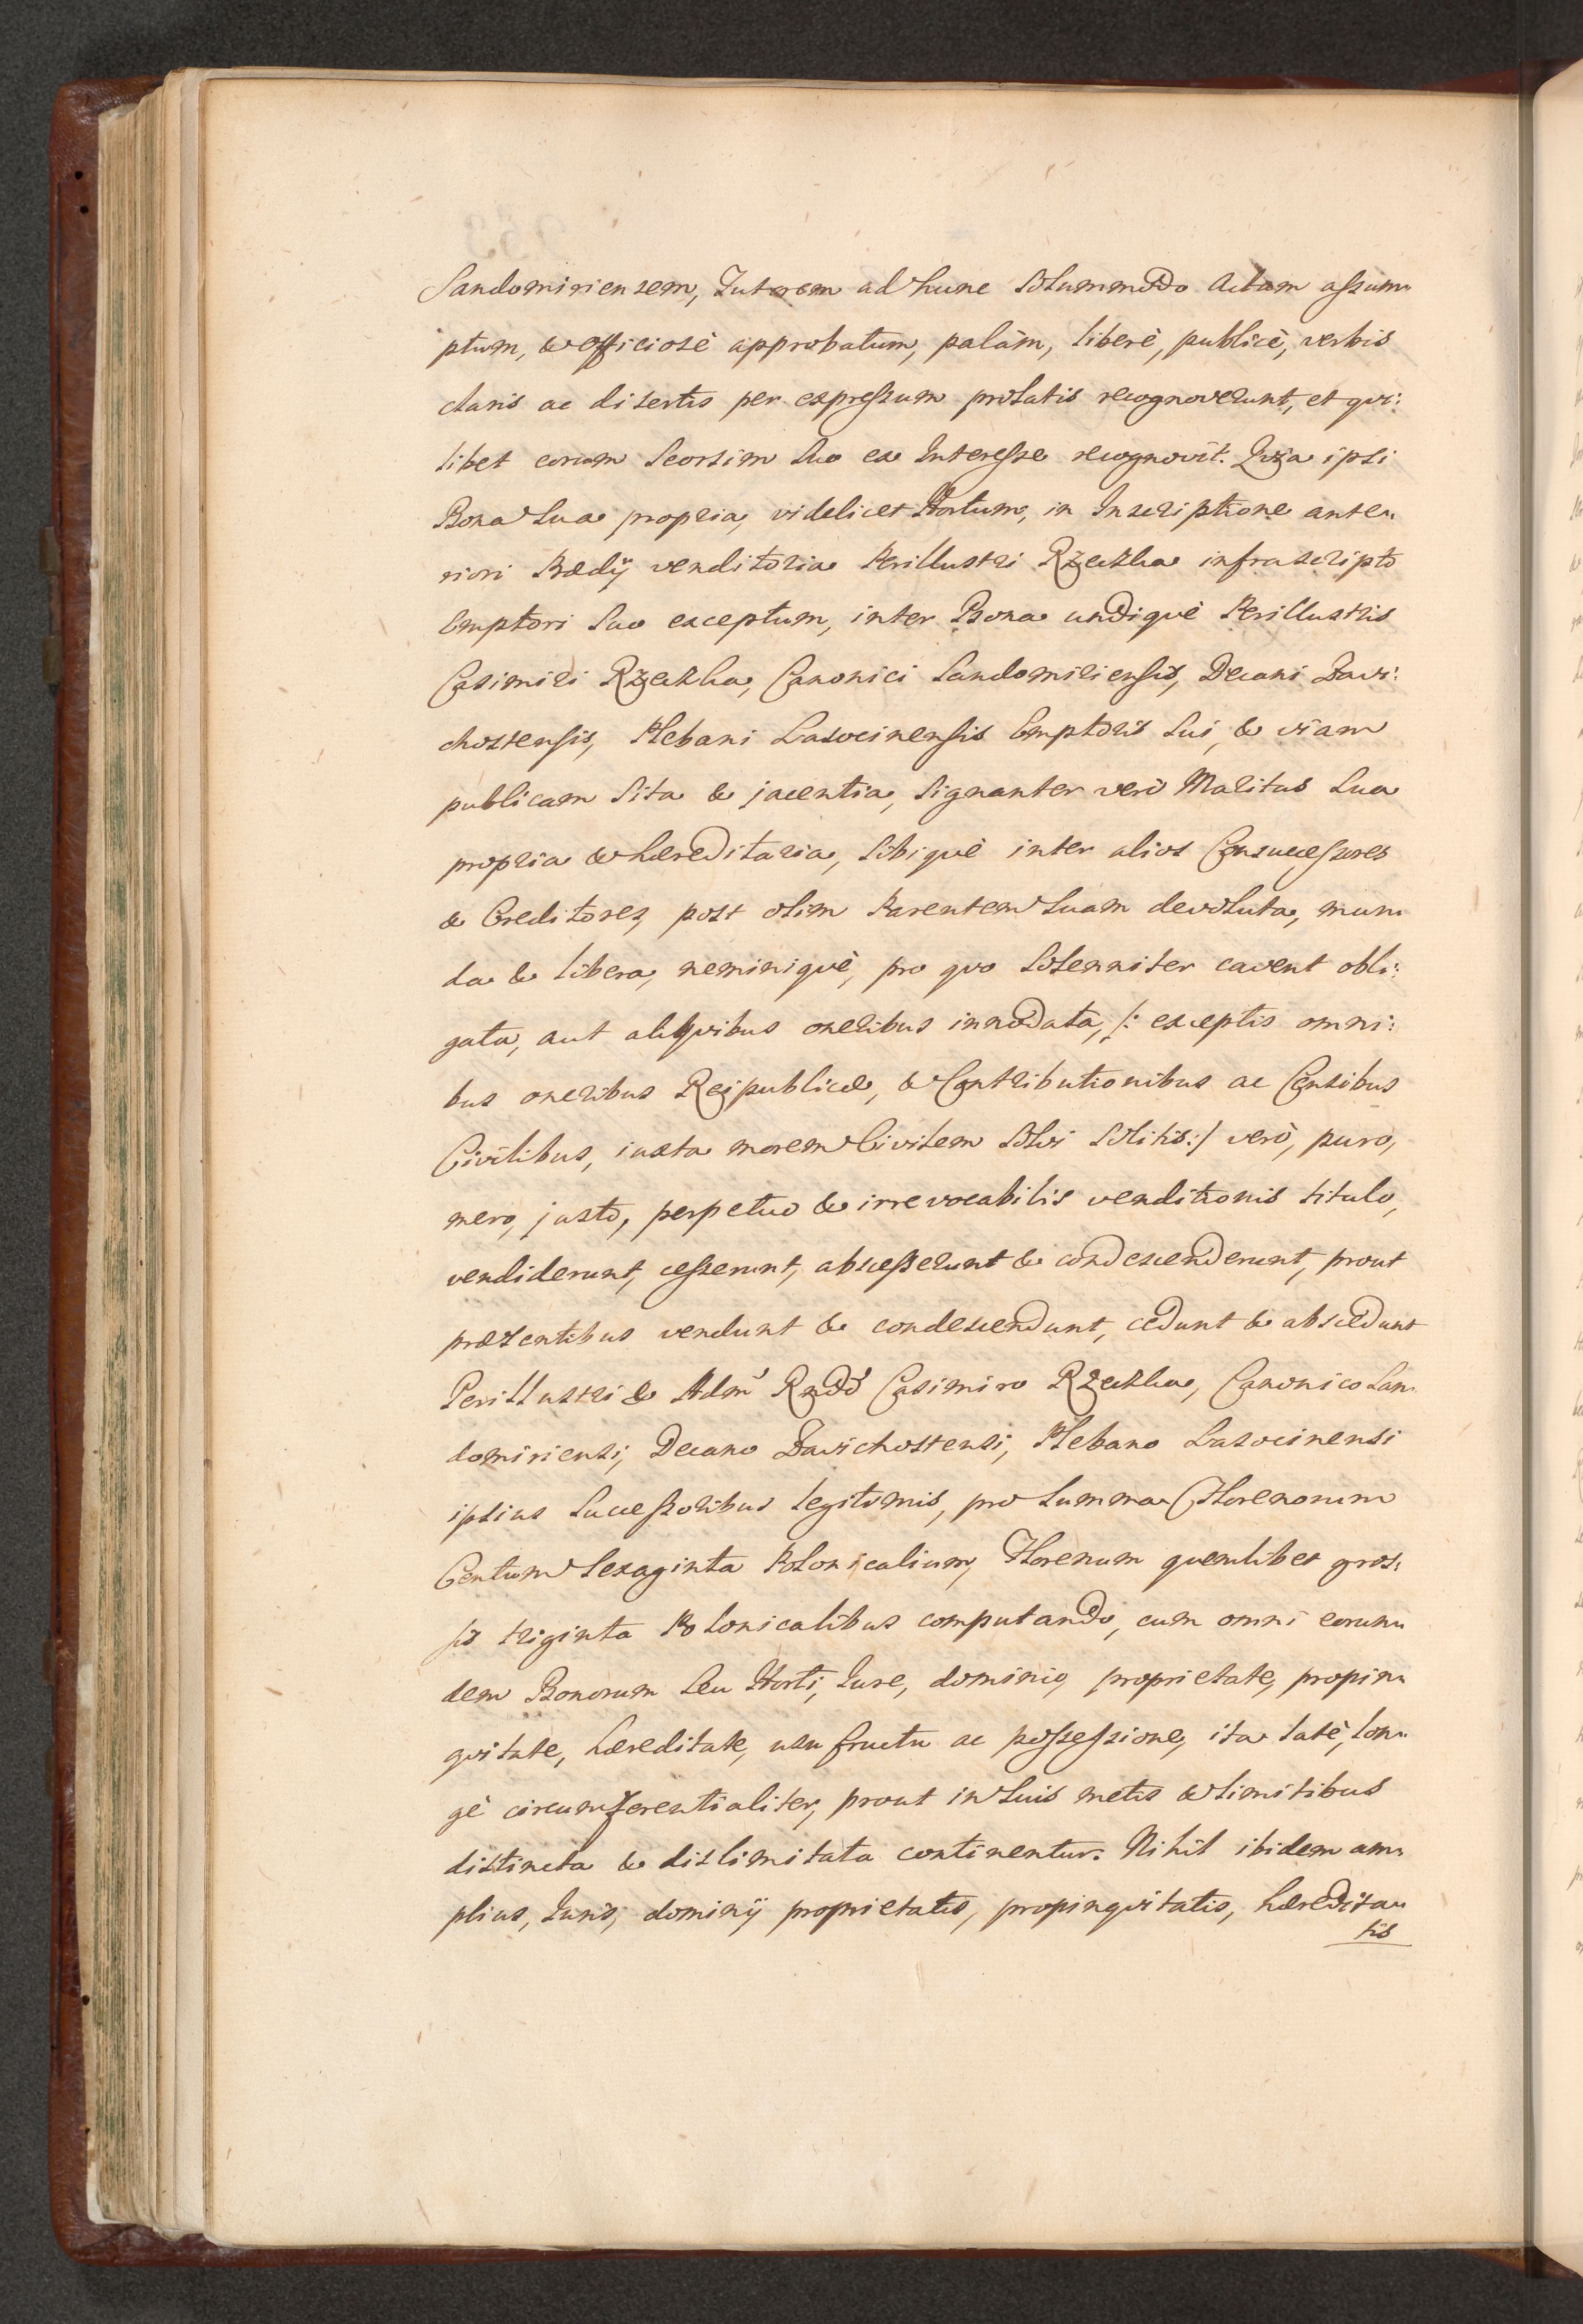 Sandomiriensem, Tutorem ad hunc solummodo Actum assum„
ptum, & officiosè approbatum, palàm, liberè, publicè, verbis
claris ac disertis per expressum prolatis recognoverunt, et qvi:
libet eorum seorsim suo ex Interesse recognovit. Qvia ipsi
Bona sua propria, videlicet Hortum, in Inscriptione ante„
riori Prædij venditoria Perillustri Rzeczka infrascripto
Emptori suo exceptum, inter Bona undiqvè Perillustris
Casimiri Rzeczka, Canonici Sandomiriensis, Decani Zawi:
chostensis, Plebani Lasocinensis Emptoris sui, & viam
publicam sita & jacentia, signanter verò Maritus sua
propria & hæreditaria, sibiqvè inter alios Consuccessores
& Creditores, post olim Parentem suam devoluta, mun„
da & libera, neminiqvè, pro qvo solenniter cavent obli:
gata, aut aliqvibus oneribus innodata, /: exceptis omni:
bus oneribus Reipublicæ, & Contributionibus ac Censibus
Civilibus, iuxta morem Civilem solvi solitis :/ verò, puro,
mero, justo, perpetuo & irrevocabilis venditionis titulo,
vendiderunt, cesserunt, abscesserunt & condescenderunt, prout
præsentibus vendunt & condescendunt, cedunt & abscedunt
Perillustri & Adm̄ Rndo Casimiro Rzeczka, Canonico San„
domiriensi, Decano Zawichostensi, Plebano Lasocinensi
ipsius Successoribus legitimis, pro summa Florenorum
Centum Sexaginta Polonicalium, Florenum qvemlibet gros:
sis triginta Polonicalibus computando, cum omni eorun„
dem Bonorum seu Horti, Iure, dominio, proprietate, propin„
qvitate, hæreditate, usu fructu ac possessione, ita latè, lon„
gè circumferentialiter, prout in suis metis & limitibus
distincta & dislimitata continentur. Nihil ibidem am„
plius, Iuris, dominij proprietatis, propinqvitatis, hæredita„
tis